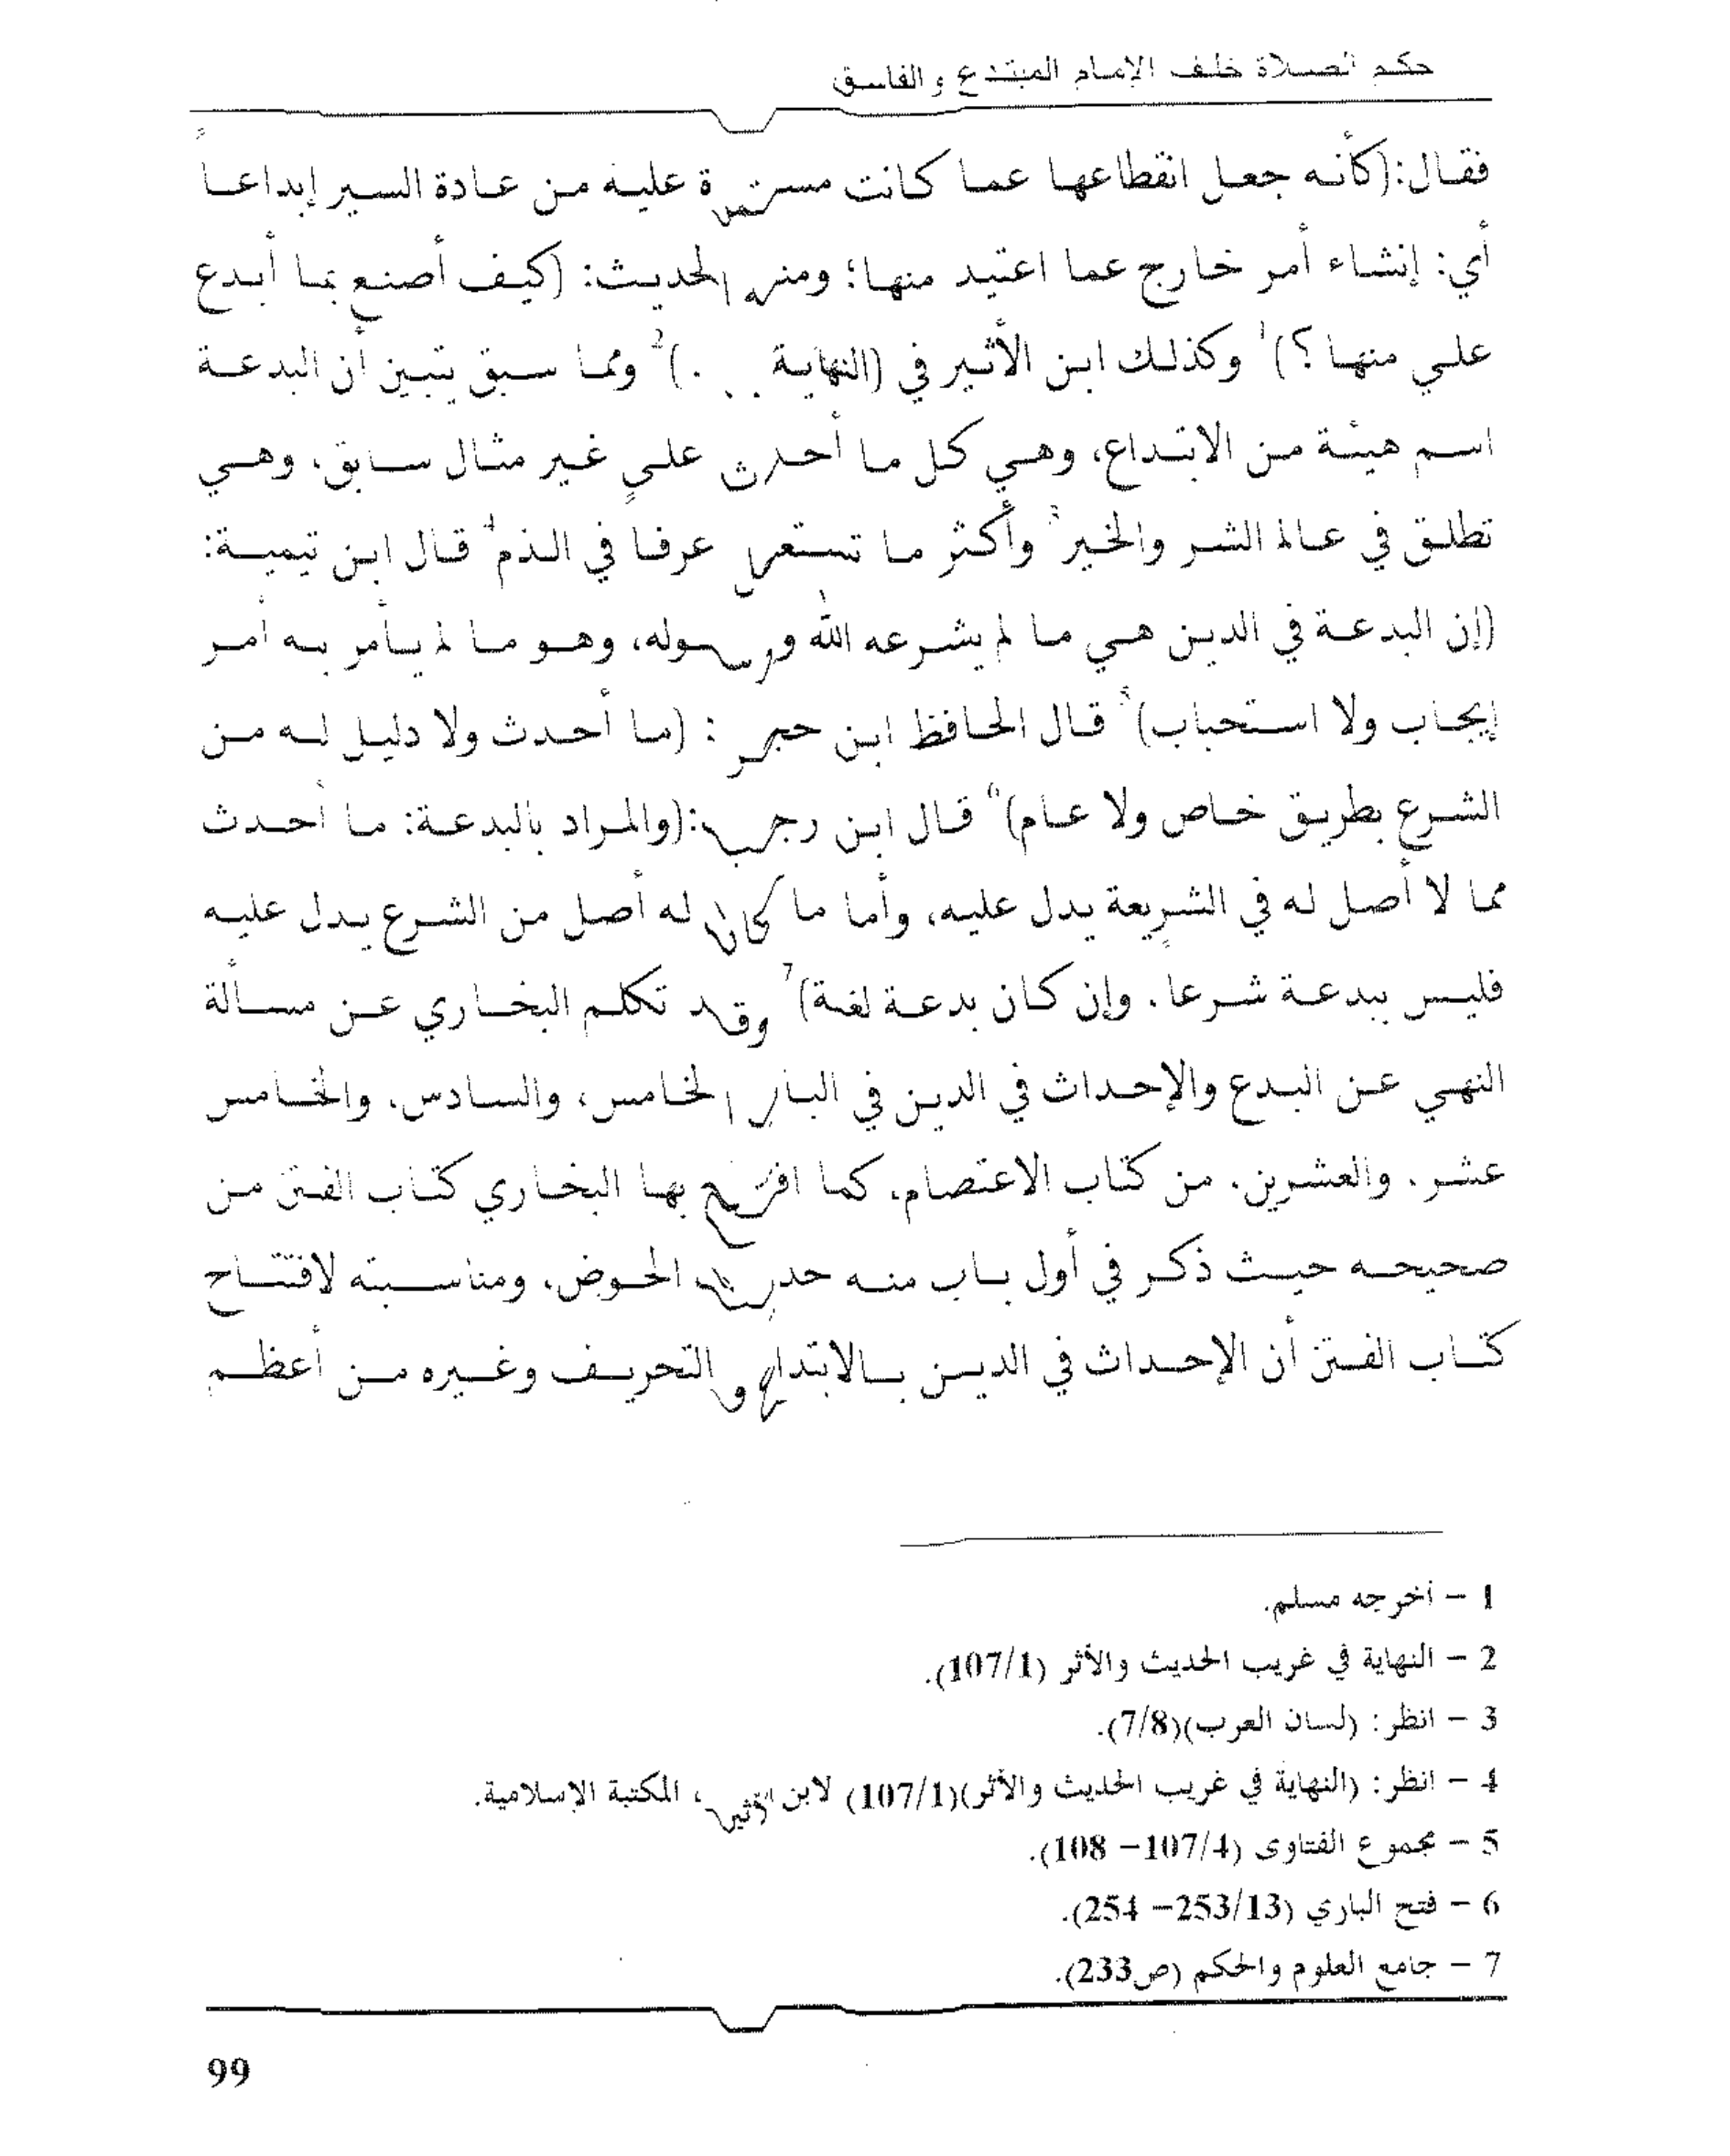 حكم الصلاة خلف الإمام المبتدع والفاسق
فقال:(كأنه جعل انقطاعها عما كانت مستمرة عليه من عادة السير إبداعاً
أي: إنشاء أمر خارج عما اعتيد منها؛ ومنه الحديث: (كيف أصنع بما أبدع
علي منها؟)1 وكذلك ابن الأثير في (النهاية ..)2 ومما سبق يتبين أن البدعة
اسم هيئة من الابتداع، وهي كل ما أحدث على غير مثال سابق، وهي
تطلق في عالم الشر والخير3 وأكثر ما تستعمل عرفا في الذم4 قال ابن تيمية:
(إن البدعة في الدين هي ما لم يشرعه الله ورسوله، وهو ما لم يأمر به أمر
إيجاب ولا استحباب)5 قال الحافظ ابن حجر: (ما أحدث ولا دليل له من
الشرع بطريق خاص ولا عام)6 قال ابن رجب:(والمراد بالبدعة: ما أحدث
مما لا أصل له في الشريعة يدل عليه، وأما ما كان له أصل من الشرع يدل عليه
فليس ببدعة شرعا، وإن كان بدعة لغة)7 وقد تكلم البخاري عن مسألة
النهي عن البدع والإحداث في الدين في الباب الخامس، والسادس، والخامس
عشر، والعشرين، من كتاب الاعتصام، كما افتتح بها البخاري كتاب الفتن من
صحيحه حيث ذكر في أول باب منه حديث الحوض، ومناسبته لافتتاح
كتاب الفتن أن الإحداث في الدين بالابتداع والتحريف وغيره من أعظم
1 – أخرجه مسلم.
2 – النهاية في غريب الحديث والأثر (107/1).
3 – انظر: (لسان العرب)(7/8).
4 – انظر: (النهاية في غريب الحديث والأثر)(107/1) لابن الأثير، المكتبة الإسلامية.
5 – مجموع الفتاوى (107/4– 108).
6 – فتح الباري (253/13– 254).
7 – جامع العلوم والحكم (ص233).
99